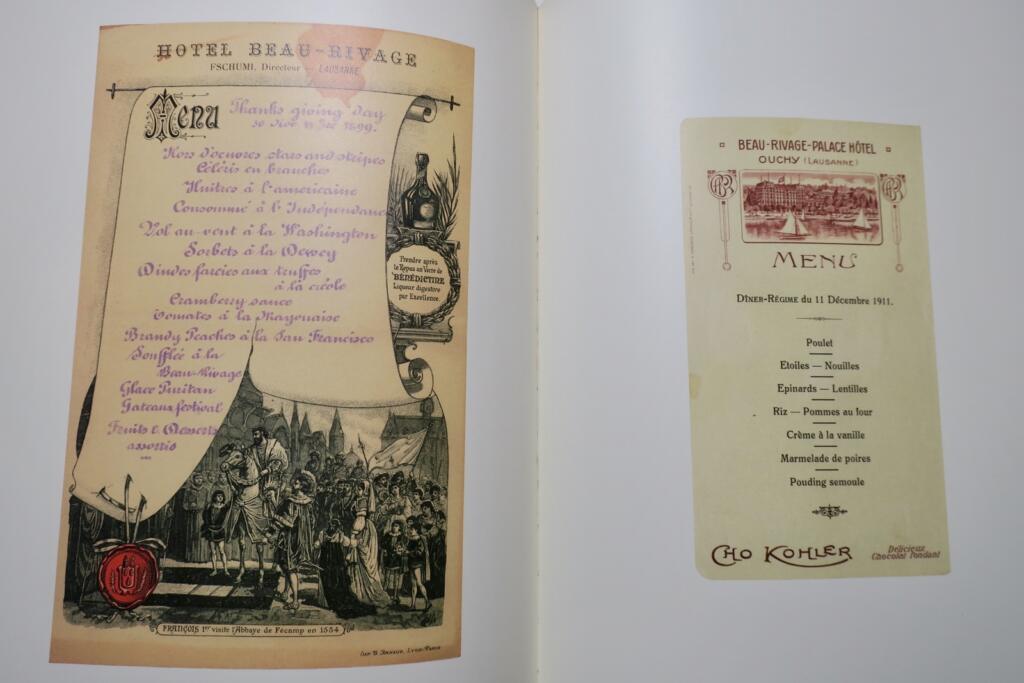 HOTEL BEAU-RIVAGE
FSCHUMI, Directeur — LAUSANNE
Menu
Thanks giving day
30 Nov. 1899.
Hors d'oeuvres stars and stripes
Céléris en branches
Huitres à l'américaine
Consommé à l'Indépendance
Vol au-vent à la Washington
Sorbets à la Dewey
Dindes farcies aux truffes
à la créole
Cramberry sauce
Tomates à la Mayonaise
Brandy Peaches à la San Francisco
Soufflée à la
Beau-Rivage
Glace Puritan
Gateaux festival
Fruits & Desserts
assortis
Prendre après
le Repas un Verre de
BÉNÉDICTINE
Liqueur digestive
par Excellence
FRANÇOIS 1er visite l'Abbaye de Fécamp en 1534
BEAU-RIVAGE-PALACE HÔTEL
OUCHY (LAUSANNE)
MENU
DÎNER-RÉGIME du 11 Décembre 1911.
Poulet
Etoiles — Nouilles
Epinards — Lentilles
Riz — Pommes au four
Crème à la vanille
Marmelade de poires
Pouding semoule
CHO KOHLER
Délicieux
Chocolat fondant